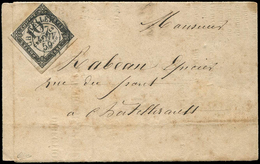 Monsieur
Rabeau Épicier
rue du pont
a Chatellerault